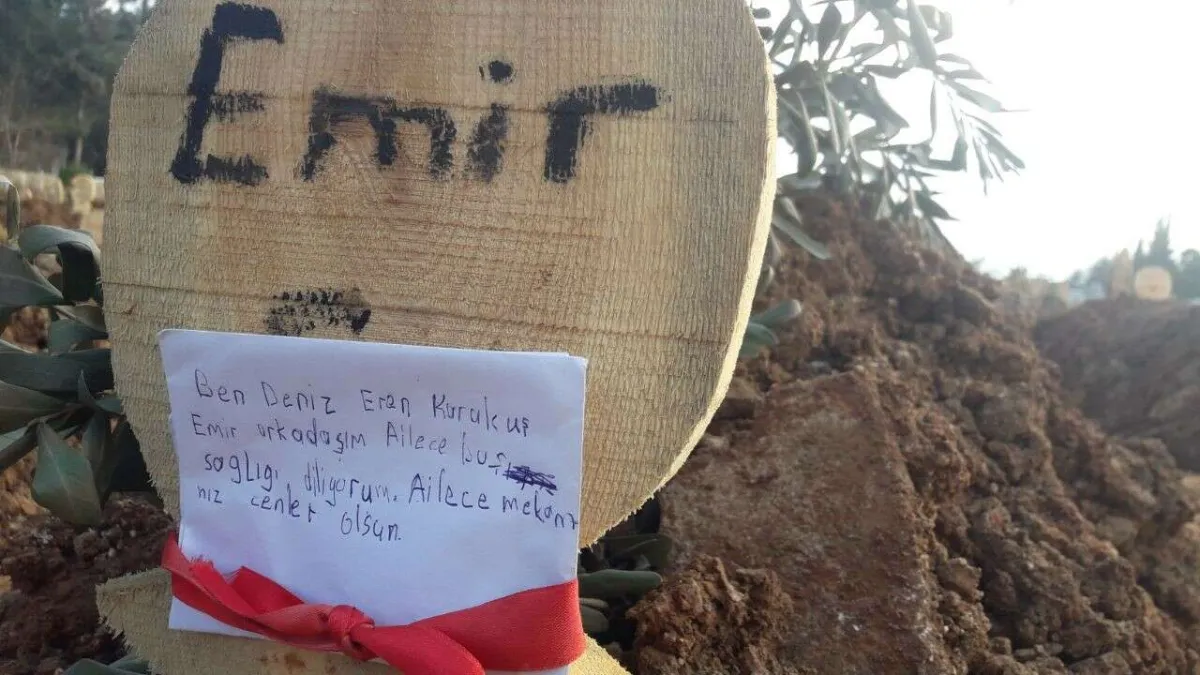 Emir
Ben Deniz Eran Karakuş
Emir arkadaşım Ailece buş
sağlığı diliyorum. Ailece mekanı
nız cenlet olsun.